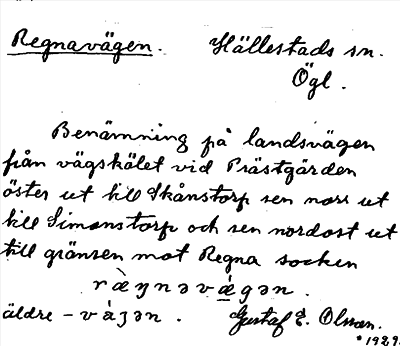 Regnavägen. Hällestads sn.
Ögl.
Benämning på landsvägen
från vägskälet vid Prästgården
öster ut till Skånstorp sen norr ut
till Simonstorp och sen nordost ut
till gränsen mot Regna socken
ræ̀ŋnəvǽ̣gən.
äldre – vàʒən. Gustaf E. Olsson.
*1929.